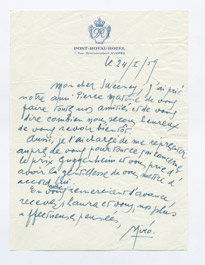 PONT-ROYAL-HOTEL
le 24/I/59
Mon cher Sweeney, j'ai prié
notre ami Pierre Matisse de vous
faire toutes nos amitiés et de vous
dire combien nous serons heureux
de vous revoir bientôt.
Aussi, je l'ai chargé de me représenter
auprès de vous pour
le prix Guggenheim et vous prie d'
avoir la gentillesse de vous mettre d'
accord
En vous remerciant d'avance
recevez, Laura et vous, nos plus
affectueuses pensées,
Miró.